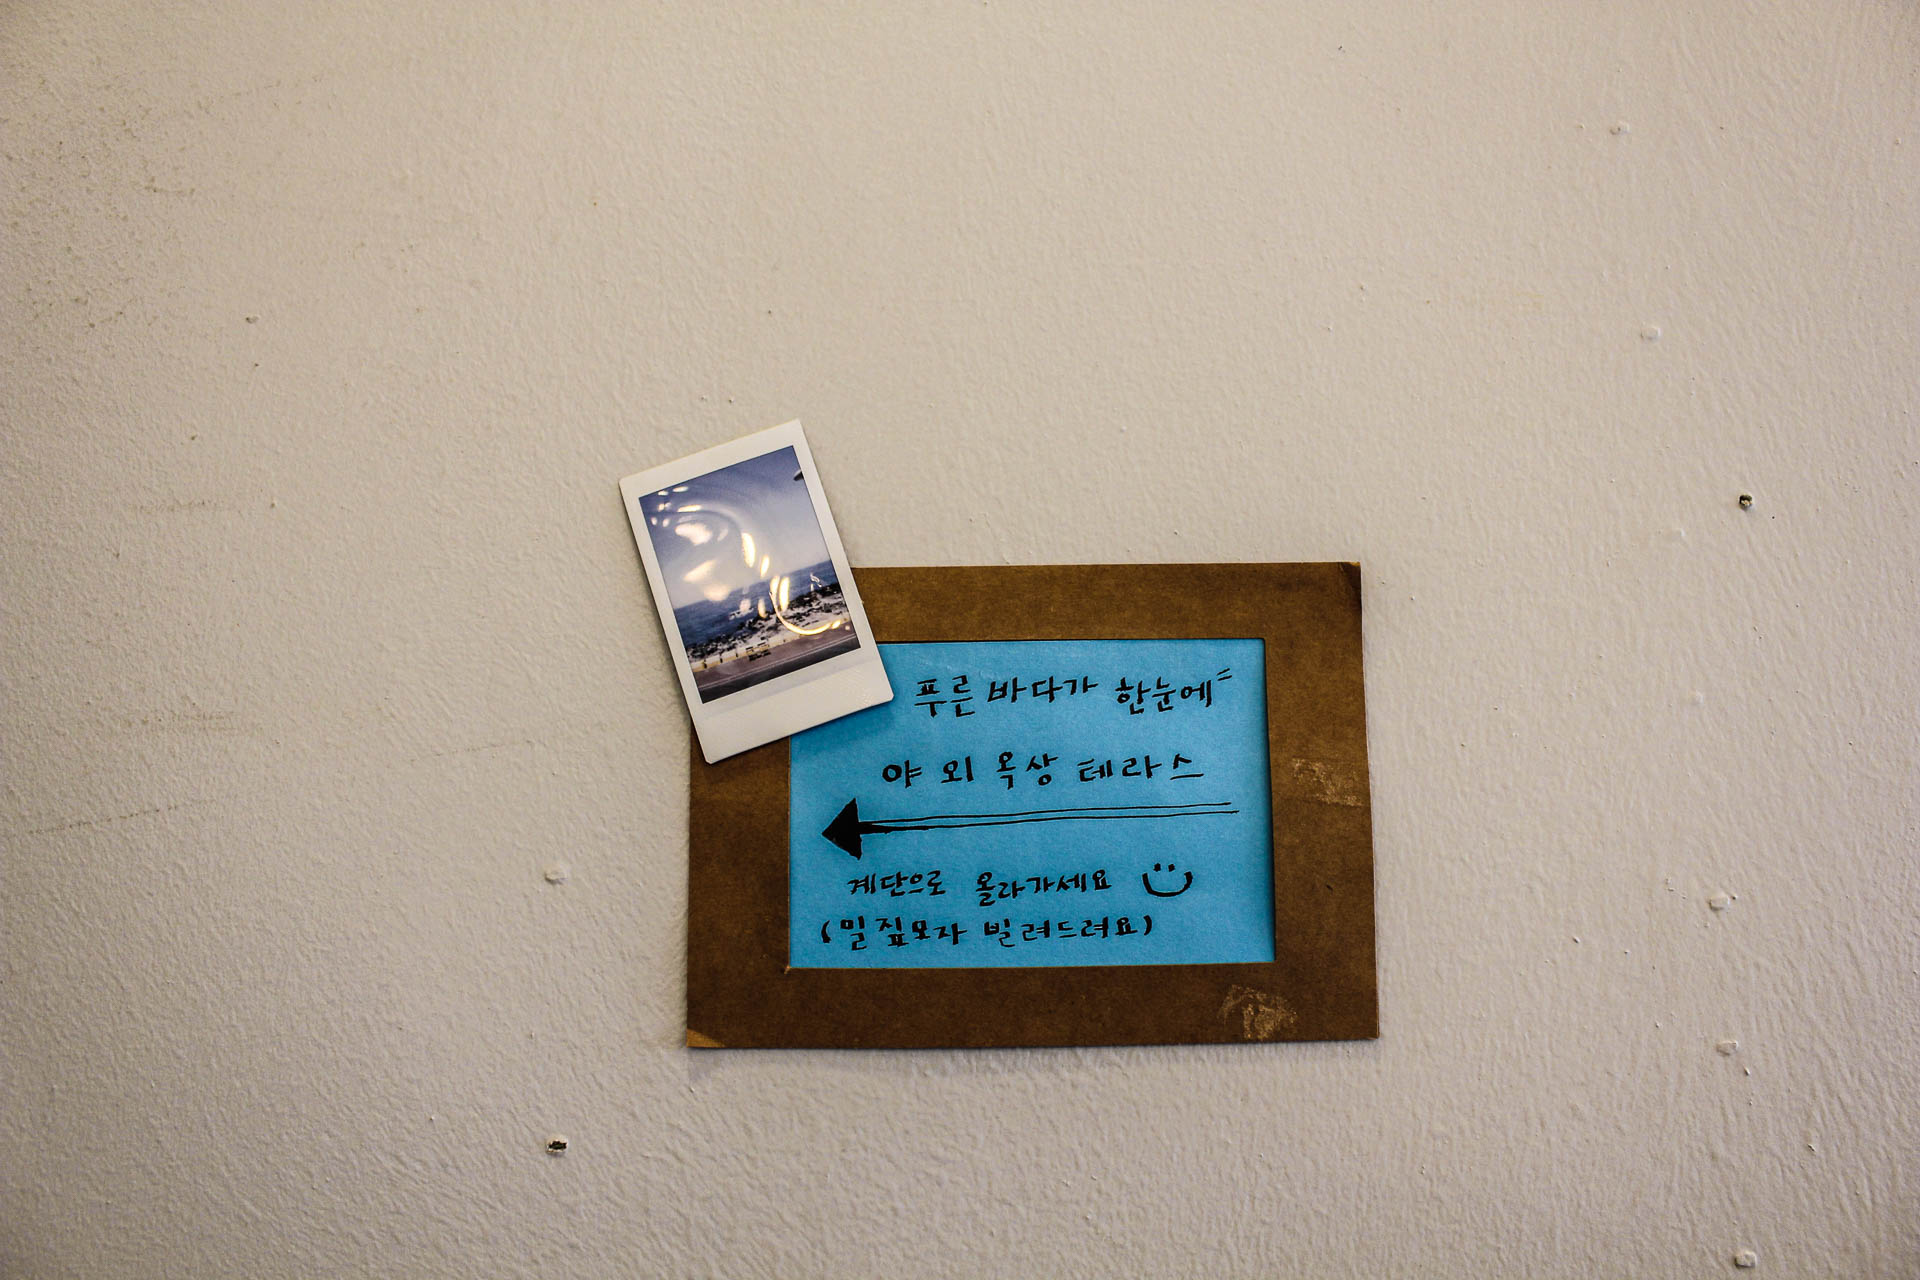 푸른 바다가 한눈에
야외 옥상 테라스
계단으로 올라가세요
(밀짚모자 빌려드려요)